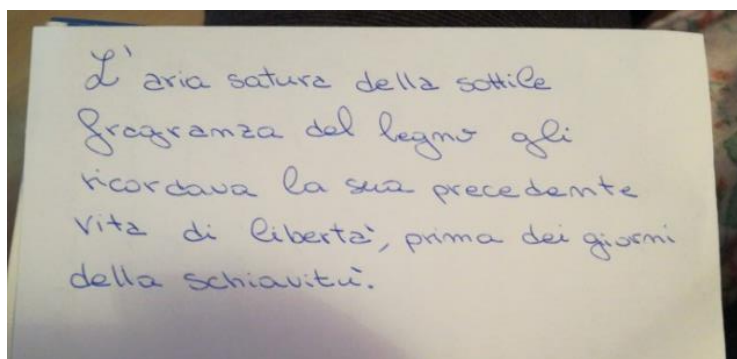 L'aria satura della sottile
fragranza del legno gli
ricordava la sua precedente
vita di libertà, prima dei giorni
della schiavitù.